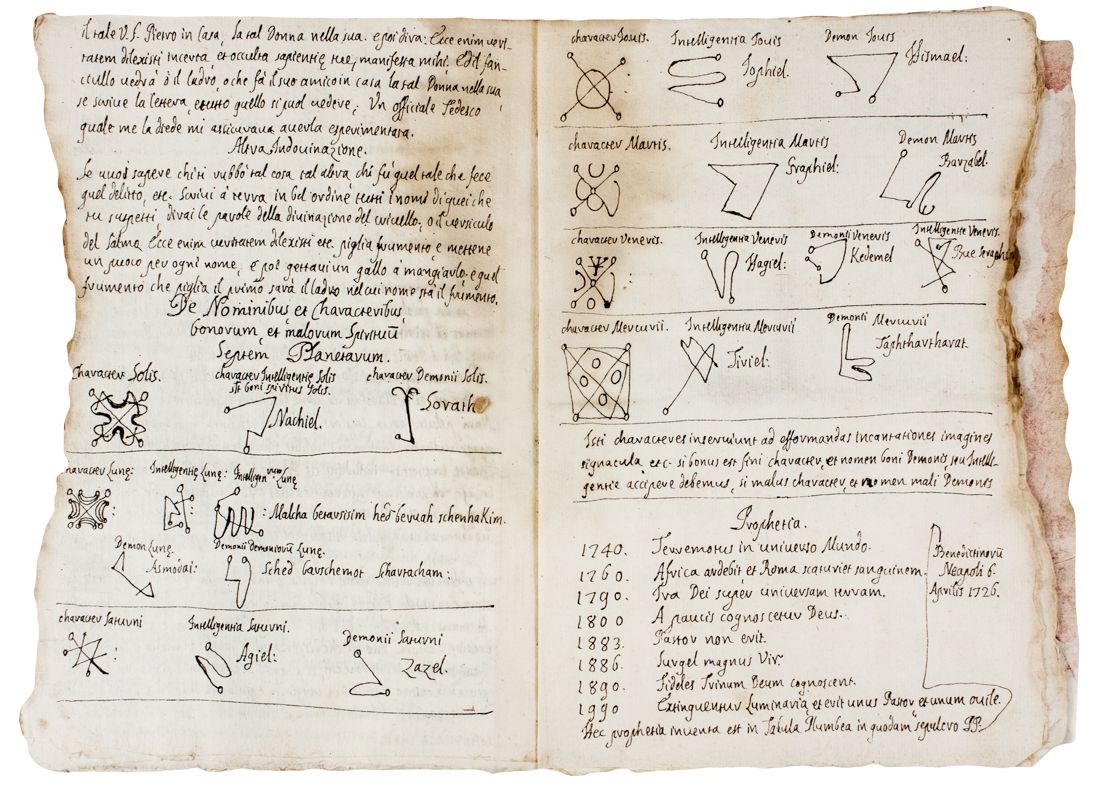 il tale V. S. Pietro in Casa, la tal Donna nella sua. e poi diva: Ecce enim verit-
tatem dilexisti incerta, et occulta sapientię tuę, manifesta mihi. Ed il fan-
ciullo vedrà ò il ladro, o che fà il suo amico in casa la tal Donna nella sua,
se scrive la lettera, e tutto quello si può vedere; Un officiale Tedesco
quale me la diede mi assicurava averla esperimentata.
Altra Indovinazione.
Se vuoi sapere chi ti rubbò tal cosa tal altra, chi fù quel tale che fece
quel delitto, etc. Scrivi à terra in bel ordine tutti i nomi di quei che
tu sospetti dirai le parole della divinazione del crivello, o il versiculo
del Salmo Ecce enim veritatem dilexisti etc. piglia frumento, e mettene
un poco per ogni nome, e poi gettavi un gallo à mangiarlo, e quel
frumento che piglia il primo sarà il ladro nel cui nome sta il frumento.
De Nominibus, et Characteribus,
bonorum, et malorum Spirituū
Septem Planetarum.
Character Solis.
character Intelligentię Solis
sit boni spiritus Solis.
Nachiel.
character Demonii Solis.
Sorath
character Lunę:
Intelligentię Lunę:
Intelligen Lunę
: Malcha betarsisim hed beruah schenhaKim.
Demon Lunę.
Asmodai:
Demonii Demoniorū Lunę.
Sched barschemot Schartacham:
character Saturni
Intelligentia Saturni.
Agiel:
Demonii Saturni
Zazel.
character Jouis.
Intelligentia Jouis
Jophiel.
Demon Jouis
Hismael:
character Martis.
Intelligentia Martis
Graphiel:
Demon Martis
Barzabel.
character Veneris.
Intelligentia Veneris
Hagiel:
Demonii Veneris
Kedemel
Intelligentię Veneris.
Bne Seraphin
character Mercurii.
Intelligentia Mercurii
Tiriel:
Demonii Mercurii
Taphthartharat.
Isti characteres inserviunt ad efformandas incantationes imagines
signacula etc. si bonus est fini character, et nomen boni Demonis, seu Intelli-
gentię accipere debemus, si malus character, et nomen mali Demonis
Prophetia.
1740. Terremotus in universo Mundo.
1760. Africa ardebit, et Roma scaturiet sanguinem.
1790. Ira Dei super universam terram.
1800 A paucis cognoscetur Deus.
1883. Pastor non erit.
1886. Surget magnus Vir.
1890. Fideles Trinum Deum cognoscent.
1990 Extinguentur Luminaria, et erit unus Pastor et unum ovile.
Hec prophetia inventa est in Tabula Plumbea in quodam sepulcro PP.
Benedictinorū
Neapoli 6.
Aprilis 1726.